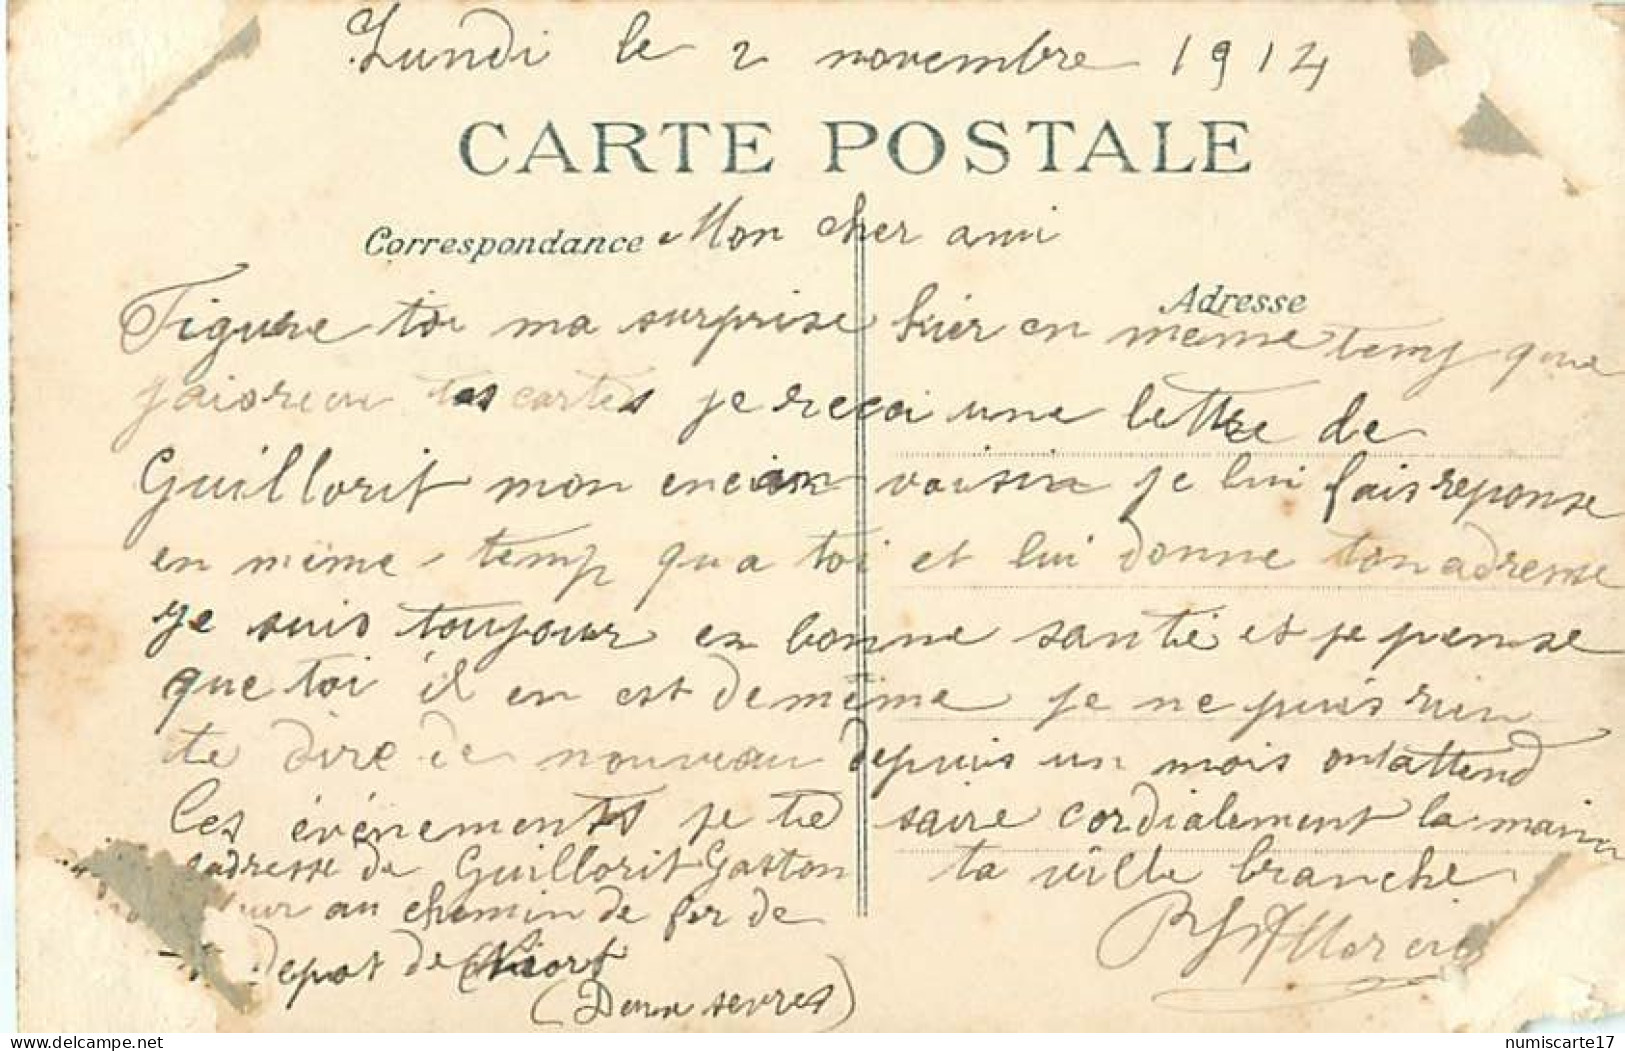 Lundi le 2 novembre 1914
CARTE POSTALE
Correspondance Mon cher ami
Adresse
Figure toi ma surprise hier en meme temp que
jaisrecu tes cartes je recoi une lettre de
Guillorit mon encien voisin je lui fais reponse
en même temp qu a toi et lui donne ton adresse
je suis toujour en bonne santé et je pense
que toi il en est de même je ne puis rien
te dire de nouveau depuis un mois ont attend
les événements je te saire cordialement la main
adresse de Guillorit Gaston ta vielle branche
au chemin de fer de
depot de Niort
(Deux sevres)
delcampe.net
numiscarte17